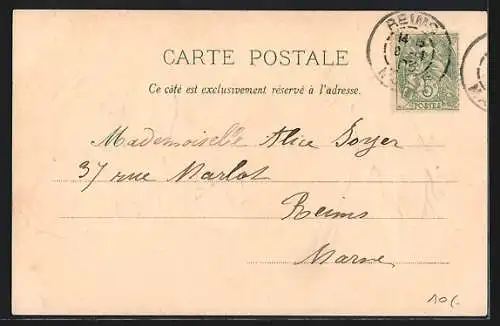 REIMS
CARTE POSTALE
Ce côté est exclusivement réservé à l'adresse.
5
POSTES
Mademoiselle Alice Doyer
37 rue Marlot
Reims
Marne